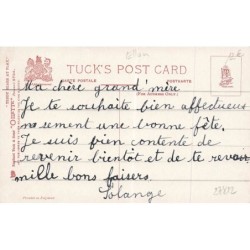 TUCK'S POST CARD
CARTE POSTALE
POSTKARTE
(FOR ADDRESS ONLY)
Ma chère grand'mère
Je te souhaite bien affectueu
sement une bonne fête.
Je suis bien contente de
revenir bientôt et de te revoir
mille bons baisers.
Solange
"OILETTE"